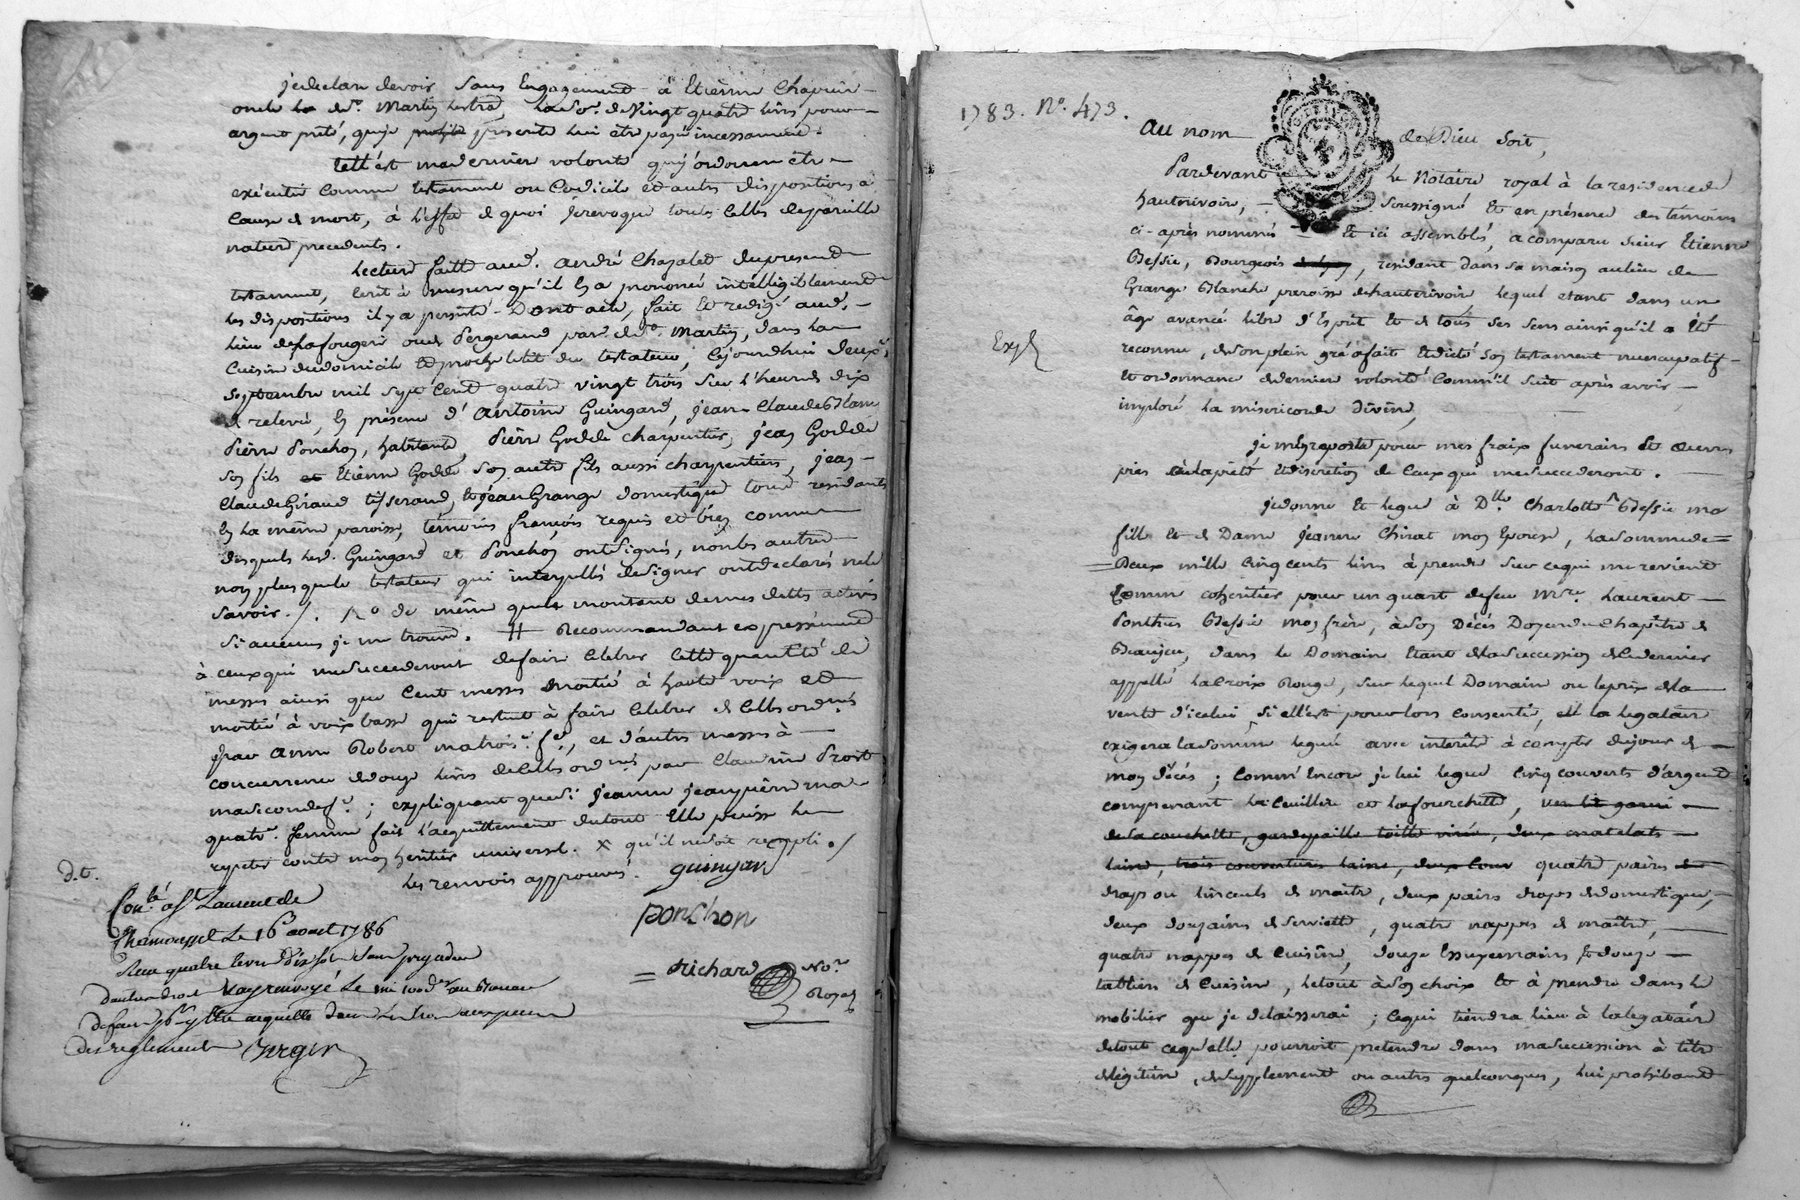 je declare devoir sans Engagement à Etienne Chapuis
oncle de Sr. Martin Lestra la so͞e. de Vingt quatre livres pour
argent prêté, que je présente lui être payé incessament.
telle est ma derniere volonté que j'ordonne être
exécutée comme testament ou Codicile et autres dispositions à
Cause de mort, à L'effet de quoi je revoque toutes Celles de pareille
nature precedents.
Lecture faitte aud. andré Chazalet du present
testament, Ecrit à mesure qu'il En a prononcé intélligiblement
les dispositions il y a persisté. Dont acte, fait Et redigé aud.
lieu de la fougere ou de Pergerand par. de St. Martin, dans la
Cuisine du domicile du testateur, Cejourd'hui deuxe.
Septembre mil sept cent quatre vingt trois sur l'heure de dix
de relevée, En présence d'antoine Guingard, jean Claude Blanc
Pierre Ponchon, habitants, Pierre Goddé charpentier, jean Goddé
son fils et Etienne Goddé son autre fils aussi charpentiers, jean
Claude Giraud tisserand, et jean Grange domestique tous residants
En la même paroisse, témoins françois requis et bien connus
desquels led. Guingard et Ponchon ont signés, non les autres
non plus que le testateur qui interpellés de signer ont declarés ne le
savoir ./. de même que le montant de mes dettes actives
si aucunes je me trouve. # Recommandant expressément
à ceux qui me succederont de faire celebrer cette quantité de
messes ainsi que Cent messes moitié à haute voix et
moitié à voix basse qui restent à faire celebrer de celles ordées
par anne Robert ma troise. fe., et d'autres messes à
concurrence de douze livres de Celles ordées par Claudine Proit
ma seconde fe. ; expliquant que si jeanne jeanpierre ma
quatre. femme fait l'acquittement du tout Elle puisse le
repeter contre mon heritier universel. x qu'il ne soit rempli ./
les renvois approuvés. guingard
d.t.
Conlé à St Laurent de
Chamousset Le 16 aout 1786
Reçu quatre livres dix sols sans prejudice
d'autres droits
des reglements Verger
ponchon
= Richard Nore.
Royal
1783. No. 473.
au nom de Dieu soit,
Pardevant Le Notaire royal à la residence de
hauterivoire, soussigné Et en présence des témoins
ci-après nommés Et ici assemblés, a comparu sieur Etienne
Bessie, Bourgeois, residant dans sa maison au lieu de
Grange Blanche paroisse de hauterivoire lequel etant dans un
âge avancé libre d'Esprit Et de tous ses sens ainsi qu'il a Eté
Exp
reconnu, de son plein gré a fait Et dicté son testament nuncupatif
Et ordonnance de derniere volonté Comm'il suit après avoir
imploré la misericorde divine,
je m'en raporte pour mes fraix funeraires Et œuvres
pies à la pieté Et discretion de ceux qui me succederont.
je donne Et legue à Dlle. Charlotte Bessie ma
fille Et de Dame Jeanne Chirat mon Epouse, la somme de =
= Deux mille Cinq cents livres à prendre sur ce qui me revient
Comme coheritier pour un quart de feu Mre. Laurent
Ponthus Bessie mon frère, à son Décés Doyen du Chapitre de
Beaujeu, dans le Domaine Etant de la succession de ce dernier
appellé la Croix Rouge, sur lequel Domaine ou le prix de la
vente d'icelui, si elle est pour lors consentie, la legataire
exigera la somme leguée avec interêts à compter du jour de
mon décés ; Comm'Encore je lui legue Cinq couverts d'argent
comprenant la Cuillere et la fourchette, un lit garni
de la couchette, gardepaille toille virée, deux matelats
laine, trois couvertures laine, deux quatre paires
draps ou linceuls de maitre, deux paires draps de domestique,
deux douzaines de serviettes, quatre nappes de maitre,
quatre nappes de Cuisine, douze Essuyemains Et douze
tabliers de Cuisine, le tout à son choix Et à prendre dans le
mobilier que je delaisserai ; ce qui tiendra lieu à la legataire
de tout ce qu'elle pourroit pretendre dans ma succession à titre
de légitime, de supplement ou autres quelconques, lui prohibant